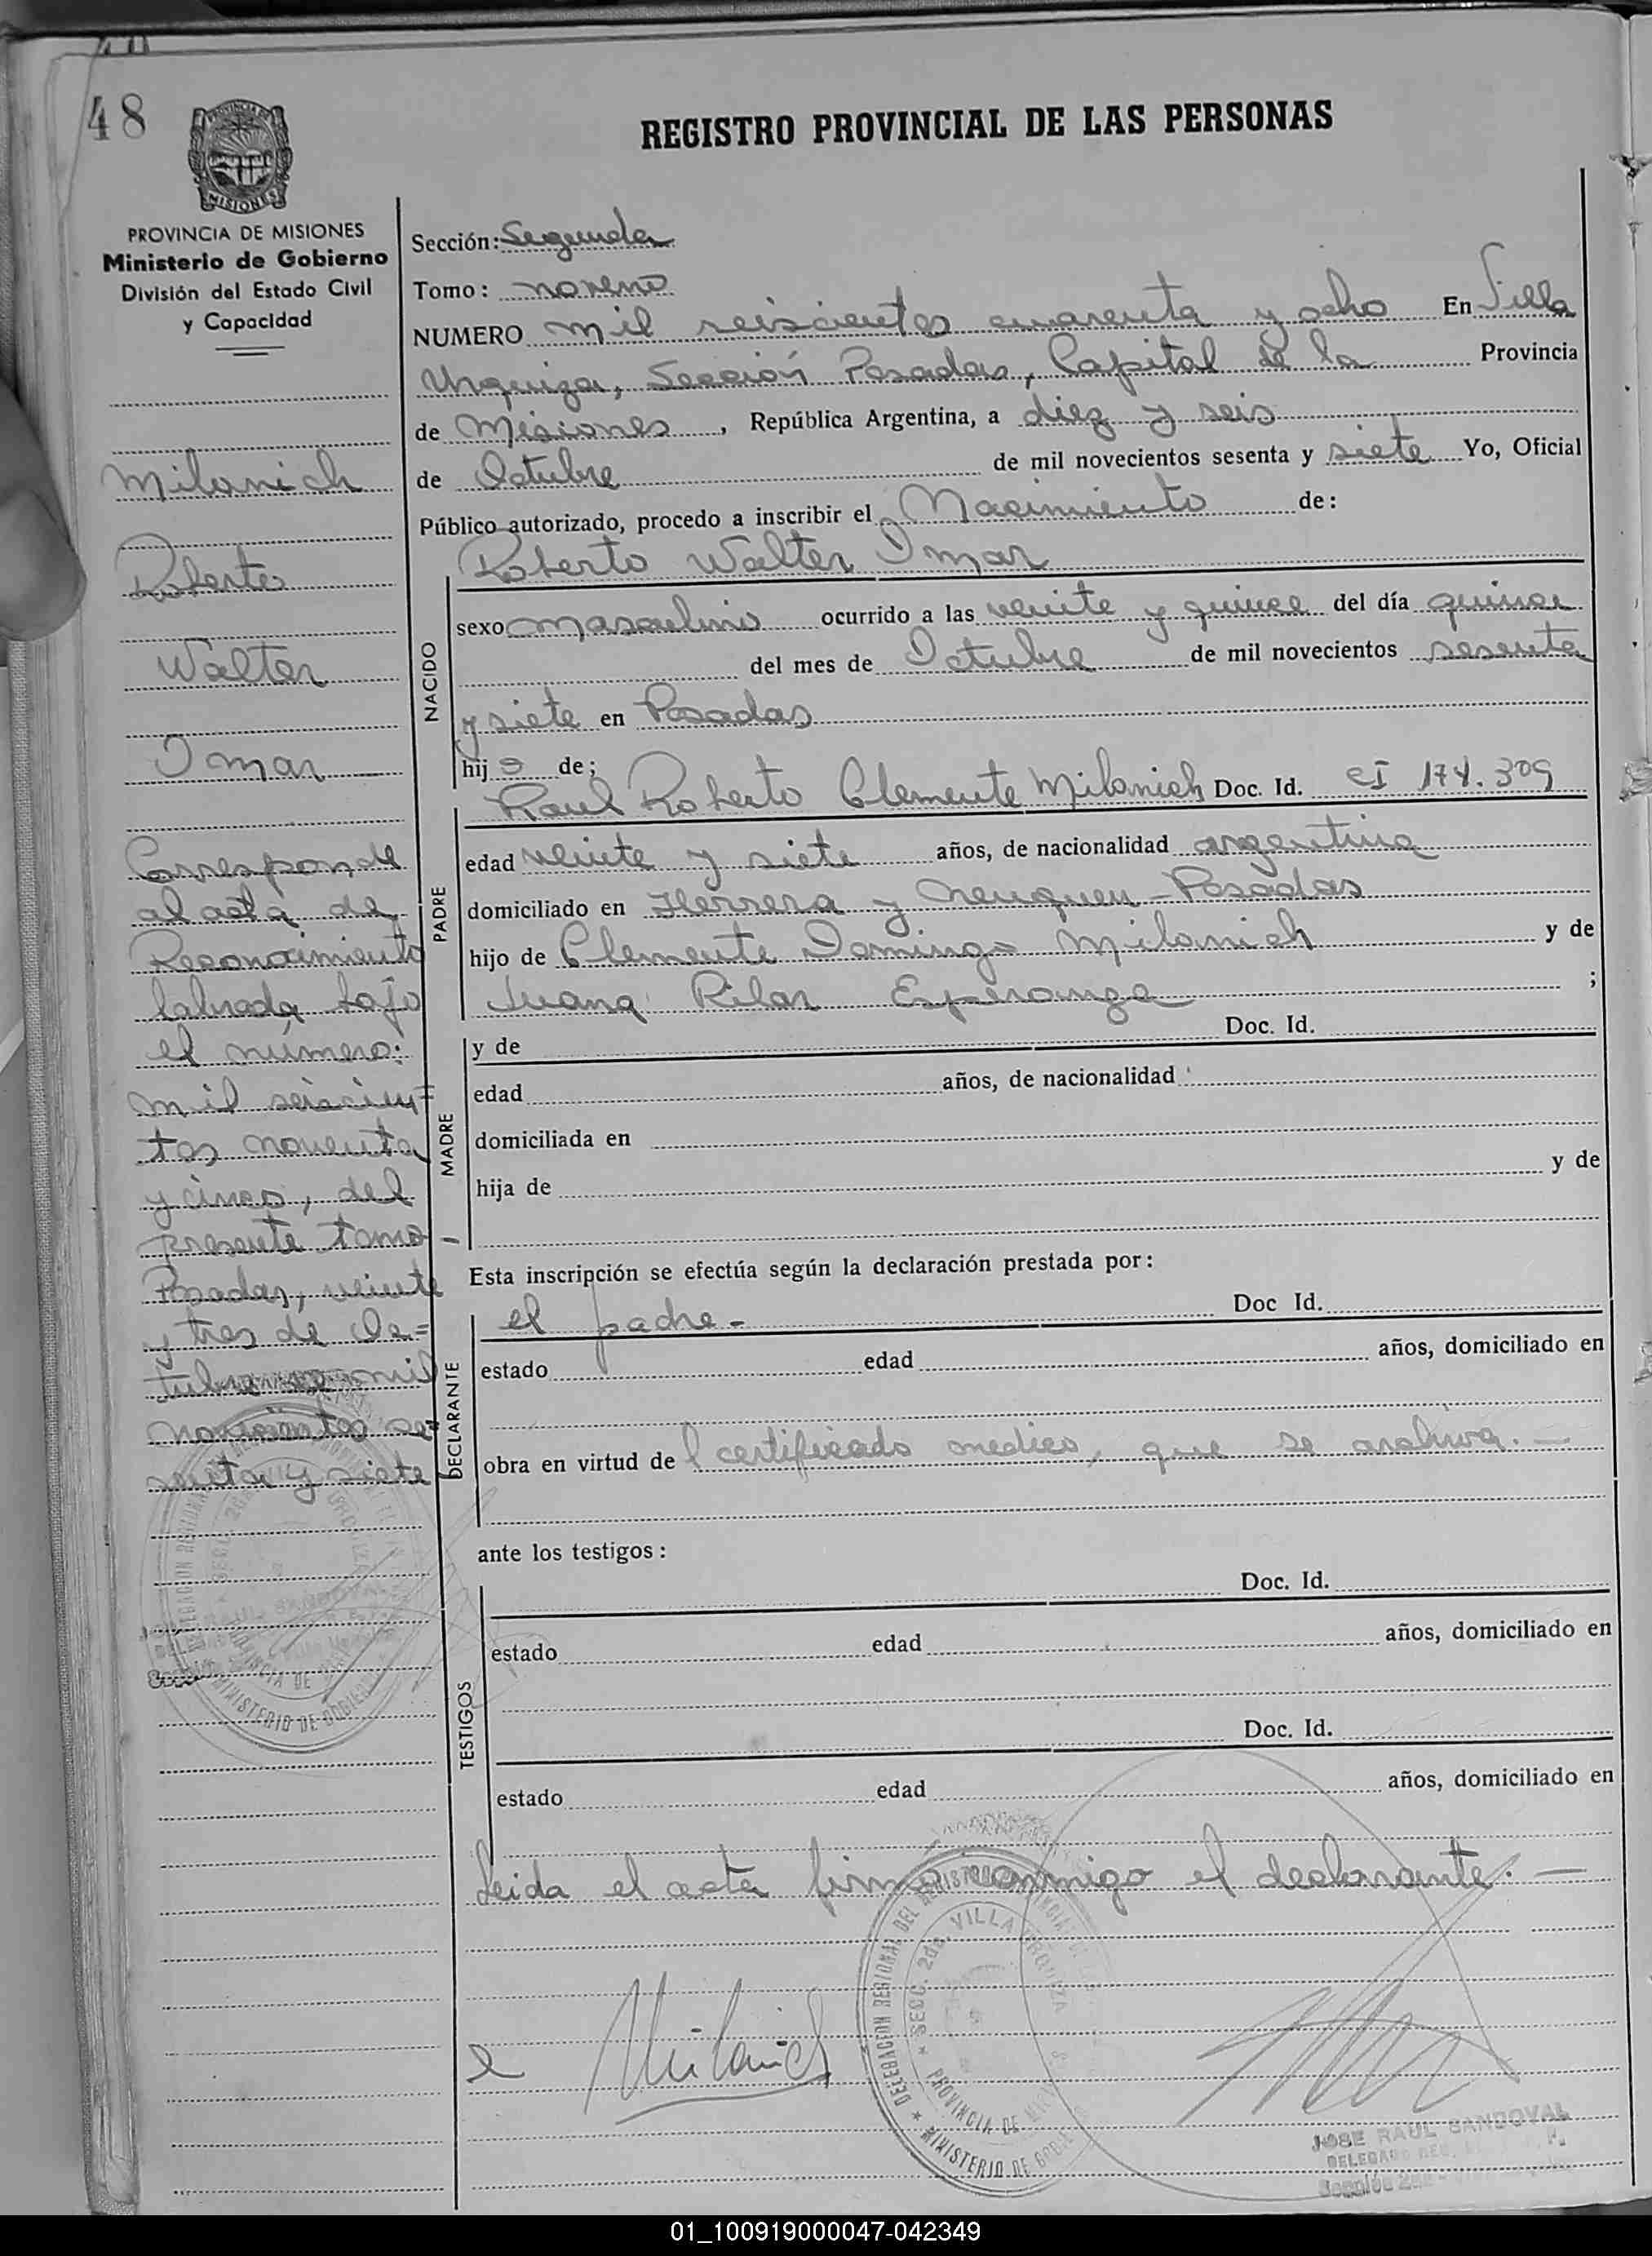 48
REGISTRO PROVINCIAL DE LAS PERSONAS
MISIONES
PROVINCIA DE MISIONES
Ministerio de Gobierno
División del Estado Civil
y Capacidad
Milanich
Roberto
Walter
Omar
Corresponde
al acta de
Reconocimiento
labrada bajo
el número:
mil seiscien=
tos noventa
y cinco, del
presente tomo -
Posadas, veinte
y tres de Oc=
tubre de mil
novecientos se=
senta y siete
Sección: Segunda
Tomo: noveno
NUMERO mil seiscientos cuarenta y ocho En Villa
Urquiza, Sección Posadas, Capital de la Provincia
de Misiones, República Argentina, a diez y seis
de Octubre de mil novecientos sesenta y siete Yo, Oficial
Público autorizado, procedo a inscribir el Nacimiento de:
Roberto Walter Omar
NACIDO
sexo masculino ocurrido a las veinte y quince del día quince
del mes de Octubre de mil novecientos sesenta
y siete en Posadas
hijo de;
PADRE
Raul Roberto Clemente Milanich Doc. Id. CI 174.309
edad veinte y siete años, de nacionalidad argentina
domiciliado en Herrera y Neuquen - Posadas
hijo de Clemente Domingo Milanich y de
Juana Pilar Esperanza ;
MADRE
y de Doc. Id.
edad años, de nacionalidad
domiciliada en
hija de y de
Esta inscripción se efectúa según la declaración prestada por:
DECLARANTE
el padre - Doc Id.
estado edad años, domiciliado en
obra en virtud de l certificado medico, que se archiva. —
ante los testigos:
TESTIGOS
Doc. Id.
estado edad años, domiciliado en
Doc. Id.
estado edad años, domiciliado en
Leida el acta firma conmigo el declarante. —
Milanich
DELEGACION REGIONAL DEL
SECC. 2da. VILLA URQUIZA
PROVINCIA DE
MINISTERIO DE GOBIE
JOSE RAUL SANDOVAL
01_100919000047-042349